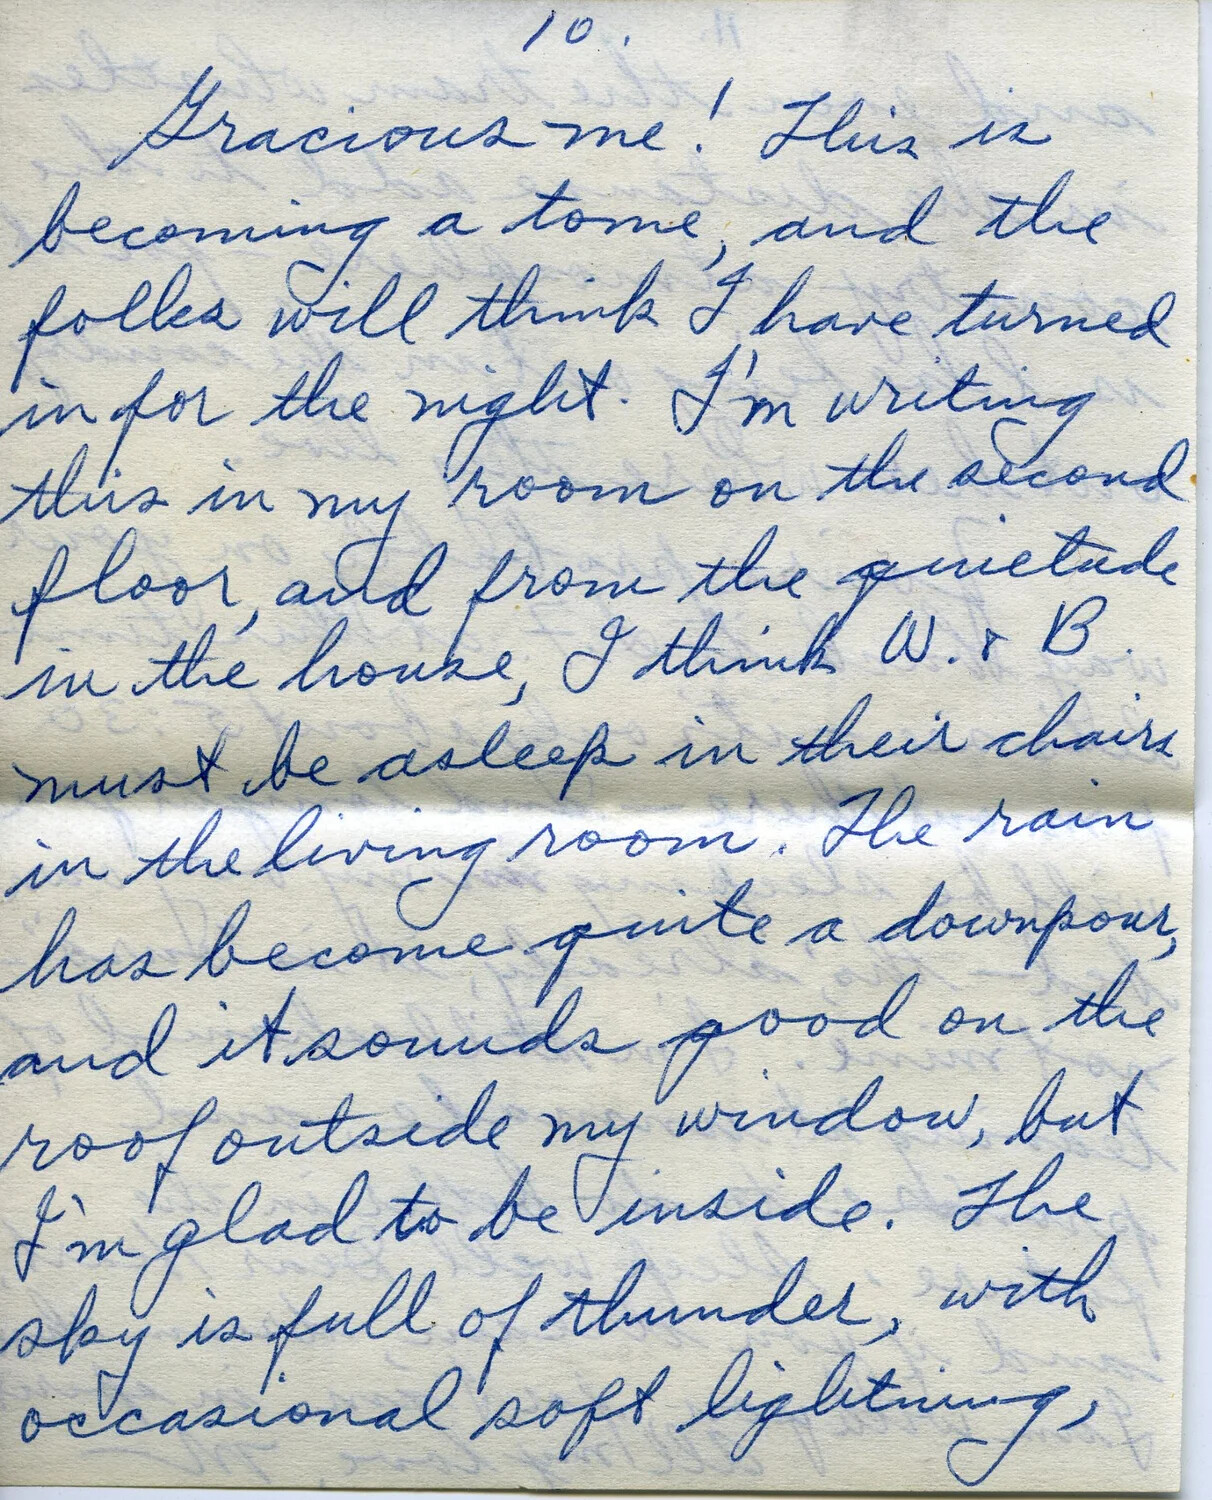 10.
Gracious me! This is
becoming a tome, and the
folks will think I have turned
in for the night. I'm writing
this in my room on the second
floor, and from the quietude
in the house, I think W. & B.
must be asleep in their chairs
in the living room. The rain
has become quite a downpour,
and it sounds good on the
roof outside my window, but
I'm glad to be inside. The
sky is full of thunder, with
occasional soft lightning,